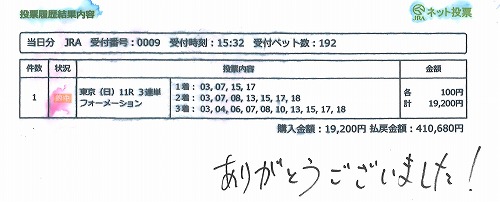 投票履歴結果内容
JRA ネット投票
当日分 JRA 受付番号：0009 受付時刻：15:32 受付ベット数：192
件数 状況 投票内容 金額
1 東京（日）11R 3連単 フォーメーション
1着： 03, 07, 15, 17
2着： 03, 07, 08, 13, 15, 17, 18
3着： 03, 04, 06, 07, 08, 10, 13, 15, 17, 18
各 100円
計 19,200円
購入金額：19,200円 払戻金額：410,680円
ありがとうございました！